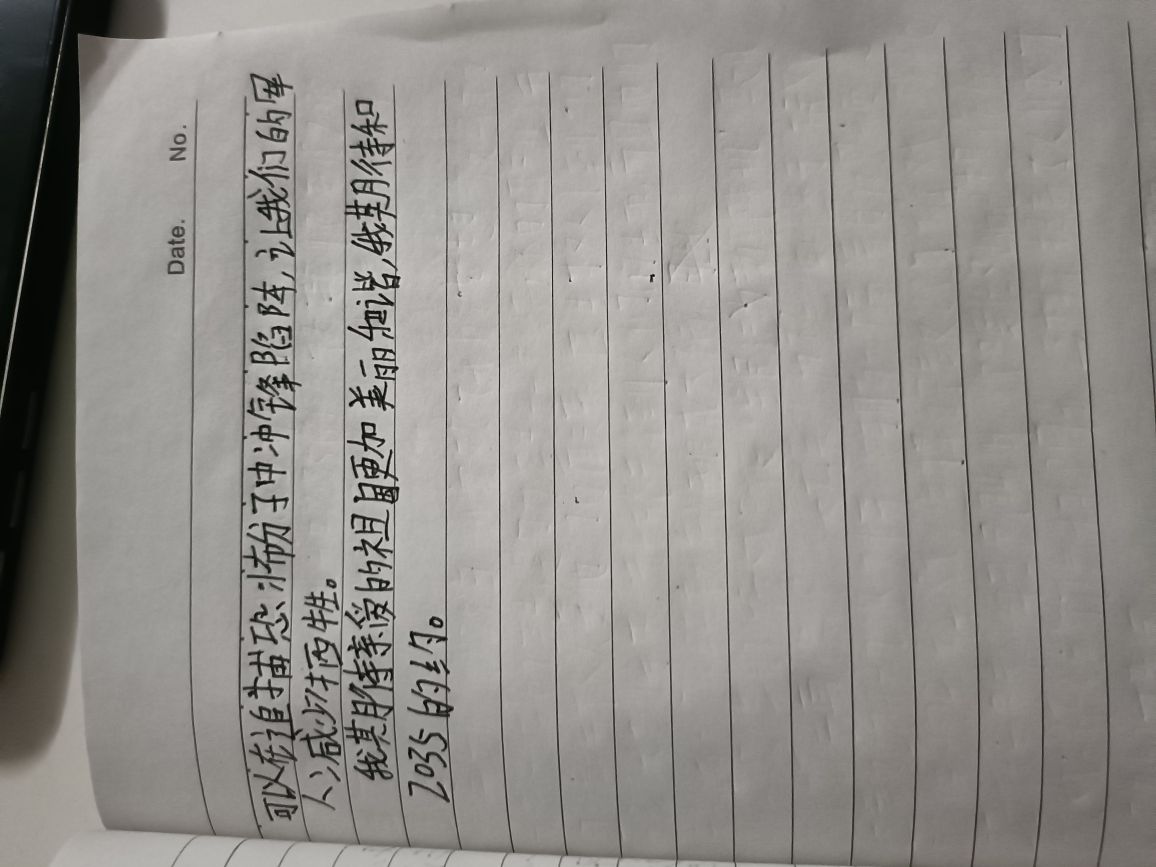 Date. No.
可以在追捕恐怖份子中冲锋陷阵,让我们的军
人减少牺牲。
我期待亲爱的祖国更加美丽和谐,我期待和
2035的约。